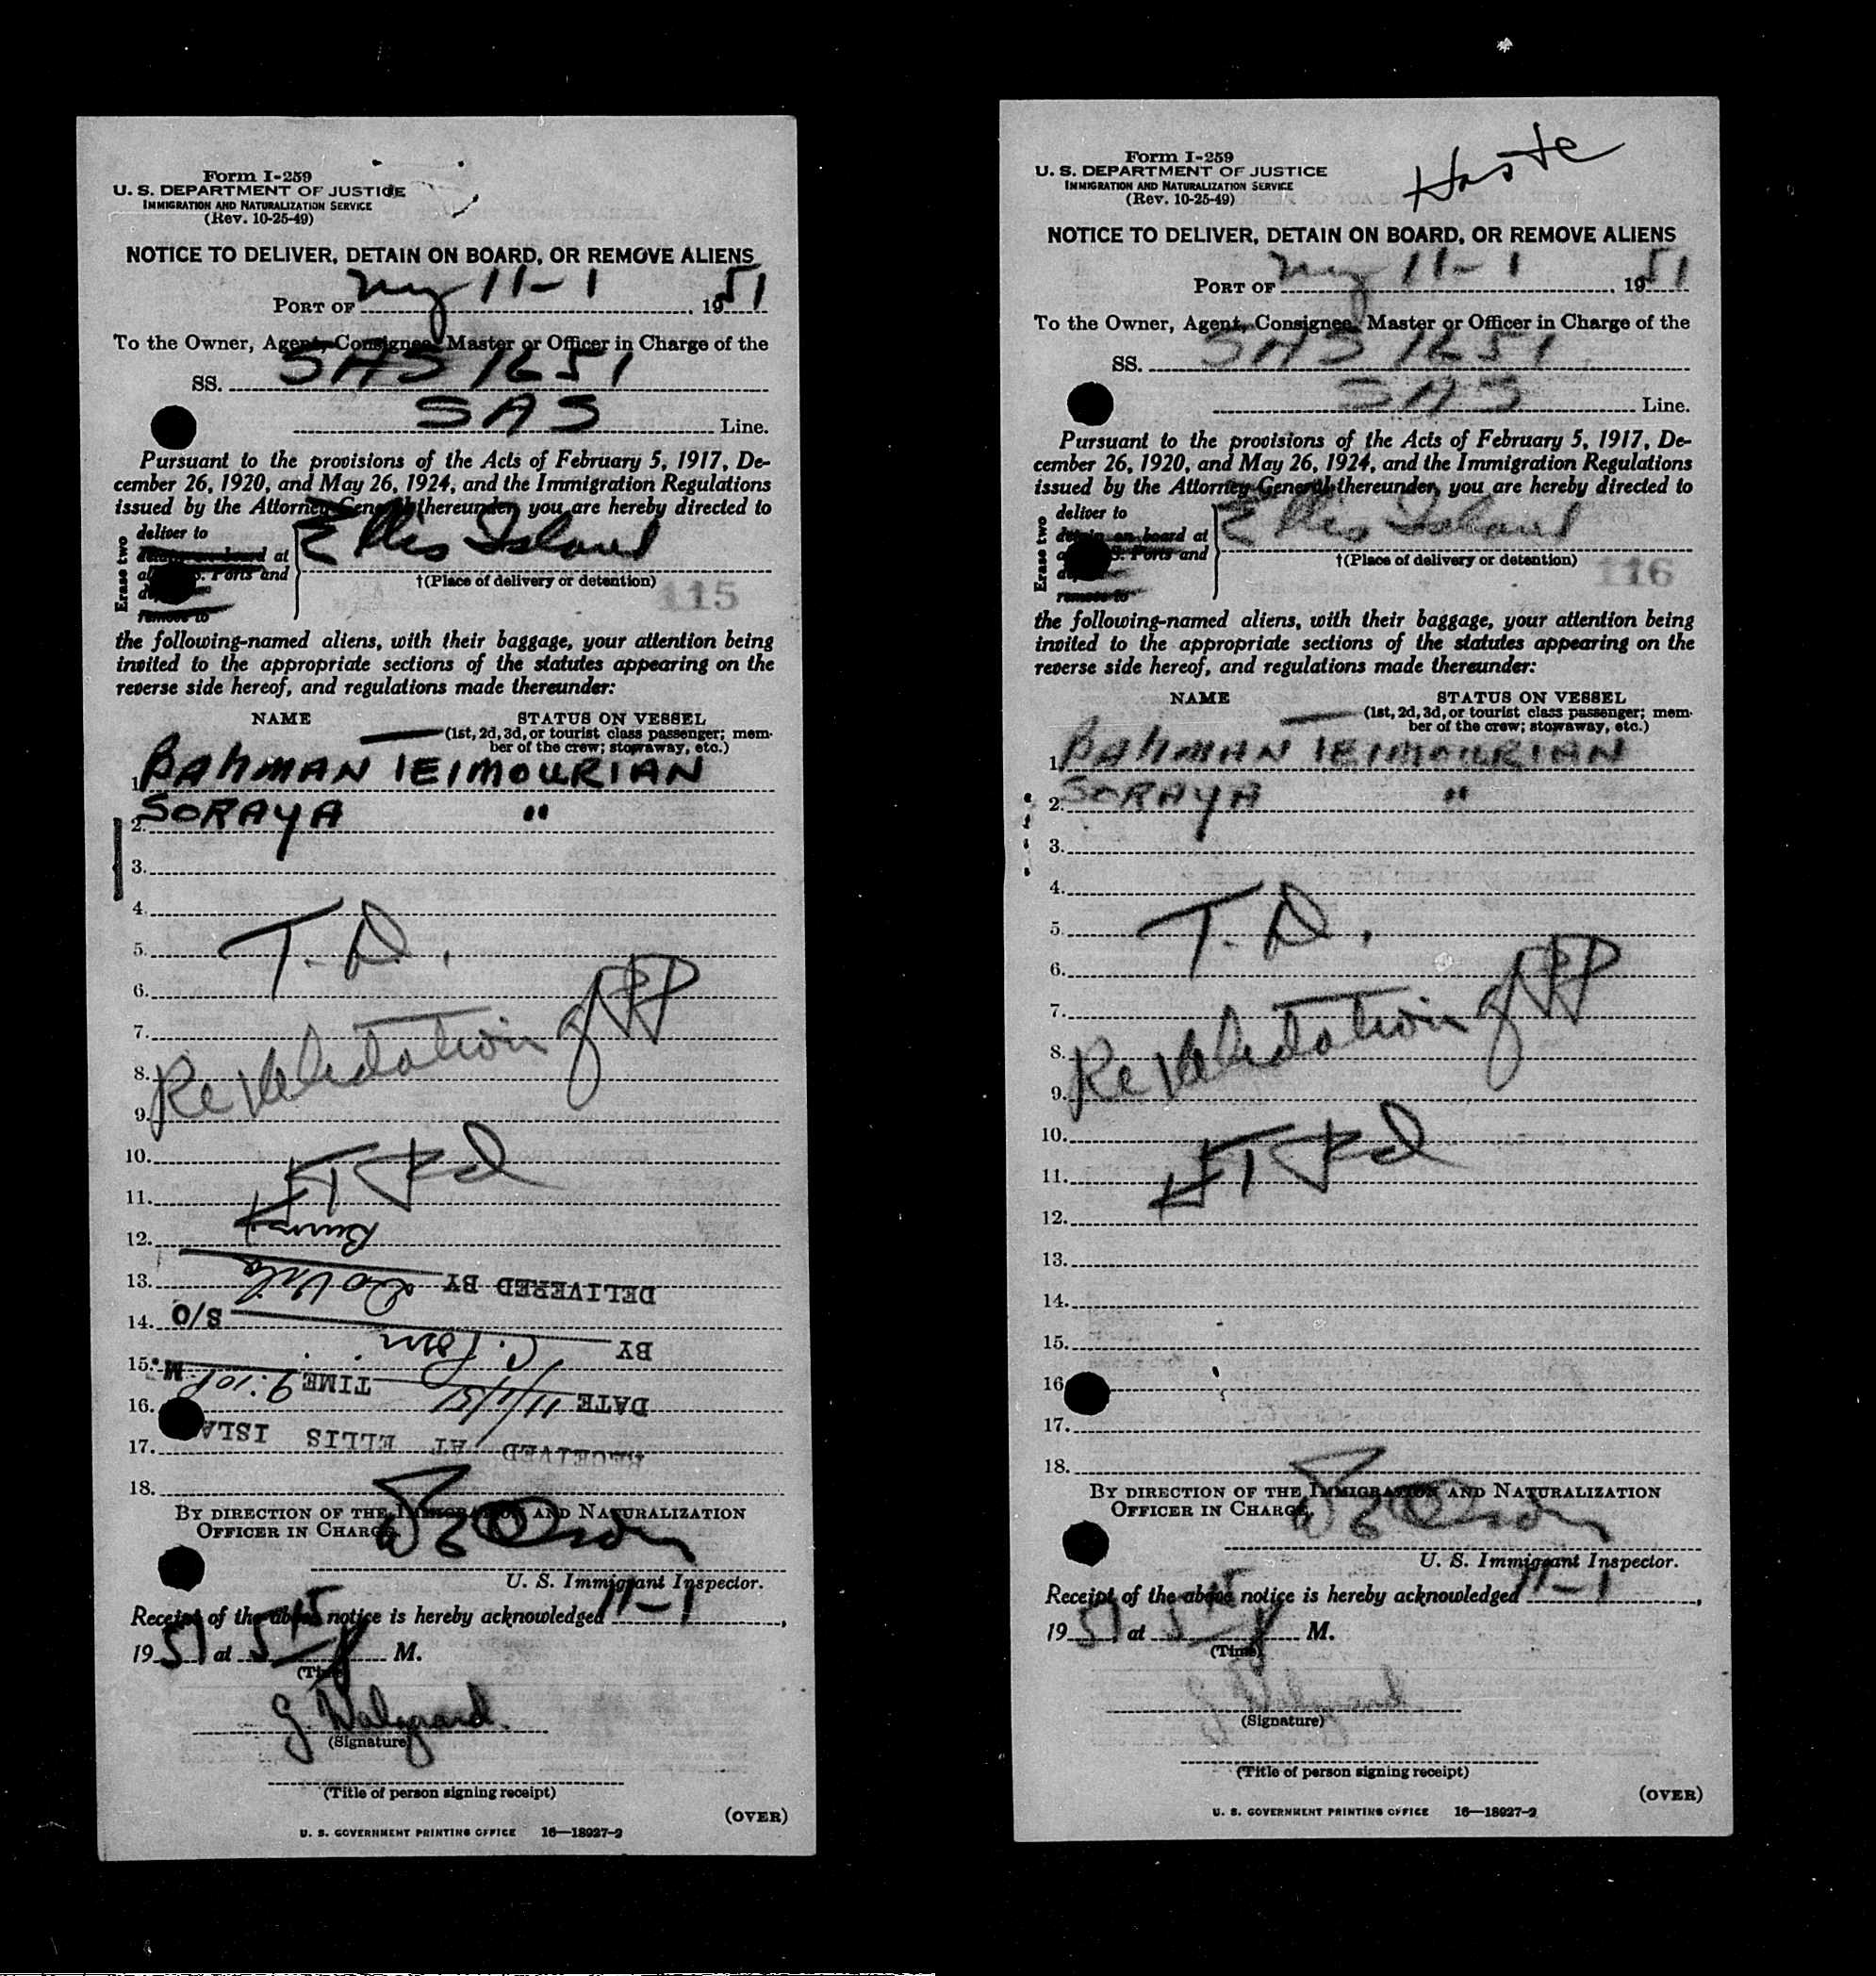 Form I-259
U. S. DEPARTMENT OF JUSTICE
IMMIGRATION AND NATURALIZATION SERVICE
(Rev. 10-25-49)
NOTICE TO DELIVER, DETAIN ON BOARD, OR REMOVE ALIENS
PORT OF ny 11-1 1951
To the Owner, Agent, Consignee, Master or Officer in Charge of the
SS. SAS 1651
SAS Line.
Pursuant to the provisions of the Acts of February 5, 1917, De-
cember 26, 1920, and May 26, 1924, and the Immigration Regulations
issued by the Attorney General thereunder, you are hereby directed to
Erase two
deliver to
detain on board at
Ports and
remove to
Ellis Island
†(Place of delivery or detention)
115
the following-named aliens, with their baggage, your attention being
invited to the appropriate sections of the statutes appearing on the
reverse side hereof, and regulations made thereunder:
NAME STATUS ON VESSEL
(1st, 2d, 3d, or tourist class passenger; mem-
ber of the crew; stowaway, etc.)
1. BAHMAN TEIMOURIAN
2. SORAYA "
3.
4.
5. T. D.
6.
7.
8. Re Validation of PP
9.
10.
11.
12.
13. DELIVERED BY
14. BY S/O
15. DATE 11/1/51 TIME 9:10 P. M.
16.
17. RECEIVED AT ELLIS ISLA
18.
BY DIRECTION OF THE IMMIGRATION AND NATURALIZATION
OFFICER IN CHARGE,
Olson
U. S. Immigrant Inspector.
Receipt of the above notice is hereby acknowledged 11-1,
1951 at 5 45 P M.
(Time)
G. Walgaard
(Signature)
(Title of person signing receipt)
(OVER)
U. S. GOVERNMENT PRINTING OFFICE 16—18927-2
Form I-259
U. S. DEPARTMENT OF JUSTICE
IMMIGRATION AND NATURALIZATION SERVICE
(Rev. 10-25-49)
NOTICE TO DELIVER, DETAIN ON BOARD, OR REMOVE ALIENS
PORT OF ny 11-1 1951
To the Owner, Agent, Consignee, Master or Officer in Charge of the
SS. SAS 1651
SAS Line.
Pursuant to the provisions of the Acts of February 5, 1917, De-
cember 26, 1920, and May 26, 1924, and the Immigration Regulations
issued by the Attorney General thereunder, you are hereby directed to
Erase two
deliver to
detain on board at
S. Ports and
remove to
Ellis Island
†(Place of delivery or detention)
116
the following-named aliens, with their baggage, your attention being
invited to the appropriate sections of the statutes appearing on the
reverse side hereof, and regulations made thereunder:
NAME STATUS ON VESSEL
(1st, 2d, 3d, or tourist class passenger; mem-
ber of the crew; stowaway, etc.)
1. BAHMAN TEIMOURIAN
2. SORAYA "
3.
4.
5. T. D.
6.
7.
8. Re Validation of PP
9.
10.
11.
12.
13.
14.
15.
16.
17.
18.
BY DIRECTION OF THE IMMIGRATION AND NATURALIZATION
OFFICER IN CHARGE,
Olson
U. S. Immigrant Inspector.
Receipt of the above notice is hereby acknowledged 11-1,
1951 at 5 45 P M.
(Time)
G. Walgaard
(Signature)
(Title of person signing receipt)
(OVER)
U. S. GOVERNMENT PRINTING OFFICE 16—18927-2